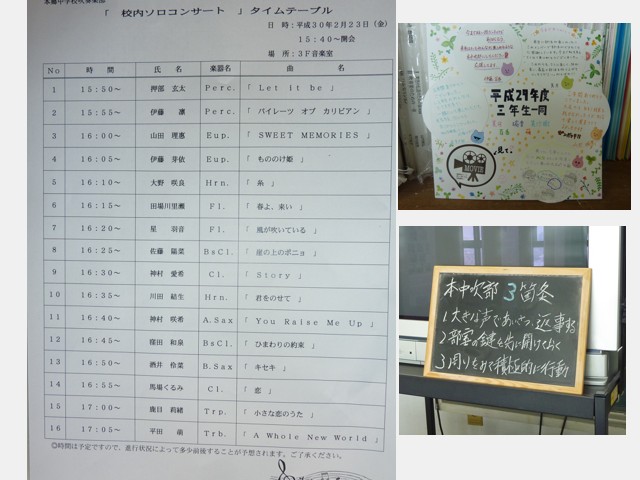 「 校内ソロコンサート 」タイムテーブル
日 時：平成３０年２月２３日（金）
１５：４０～開会
場 所：３Ｆ音楽室
Ｎｏ 時 間 氏 名 楽器名 曲 名
1 １５：５０～ 押部 玄太 Ｐｅｒｃ． 「 Ｌｅｔ ｉｔ ｂｅ 」
2 １５：５５～ 伊藤 凛 Ｐｅｒｃ． 「 パイレーツ オブ カリビアン 」
3 １６：００～ 山田 理惠 Ｅｕｐ． 「 ＳＷＥＥＴ ＭＥＭＯＲＩＥＳ 」
4 １６：０５～ 伊藤 芽依 Ｅｕｐ． 「 もののけ姫 」
5 １６：１０～ 大野 咲良 Ｈｒｎ． 「 糸 」
6 １６：１５～ 田場川里瀬 Ｆｌ． 「 春よ、来い 」
7 １６：２０～ 星 羽音 Ｆｌ． 「 風が吹いている 」
8 １６：２５～ 佐藤 陽菜 ＢｓＣｌ． 「 崖の上のポニョ 」
9 １６：３０～ 神村 愛希 Ｃｌ． 「 Ｓｔｏｒｙ 」
10 １６：３５～ 川田 結生 Ｈｒｎ． 「 君をのせて 」
11 １６：４０～ 神村 咲希 Ａ．Ｓａｘ 「 Ｙｏｕ Ｒａｉｓｅ Ｍｅ Ｕｐ 」
12 １６：４５～ 窪田 和泉 ＢｓＣｌ． 「 ひまわりの約束 」
13 １６：５０～ 酒井 伶菜 Ｂ．Ｓａｘ 「 キセキ 」
14 １６：５５～ 馬場くるみ Ｃｌ． 「 恋 」
15 １７：００～ 鹿目 莉緒 Ｔｒｐ． 「 小さな恋のうた 」
16 １７：０５～ 平田 萌 Ｔｒｂ． 「 Ａ Ｗｈｏｌｅ Ｎｅｗ Ｗｏｒｌｄ 」
◎時間は予定ですので、進行状況によって多少前後することが予想されます。ご了承ください。
平成29年度
三年生一同
見て。
MOVIE
本中吹部 3箇条
1 大きな声であいさつ、返事する
2 部室の鍵を先に開けておく
3 周りをみて積極的に行動